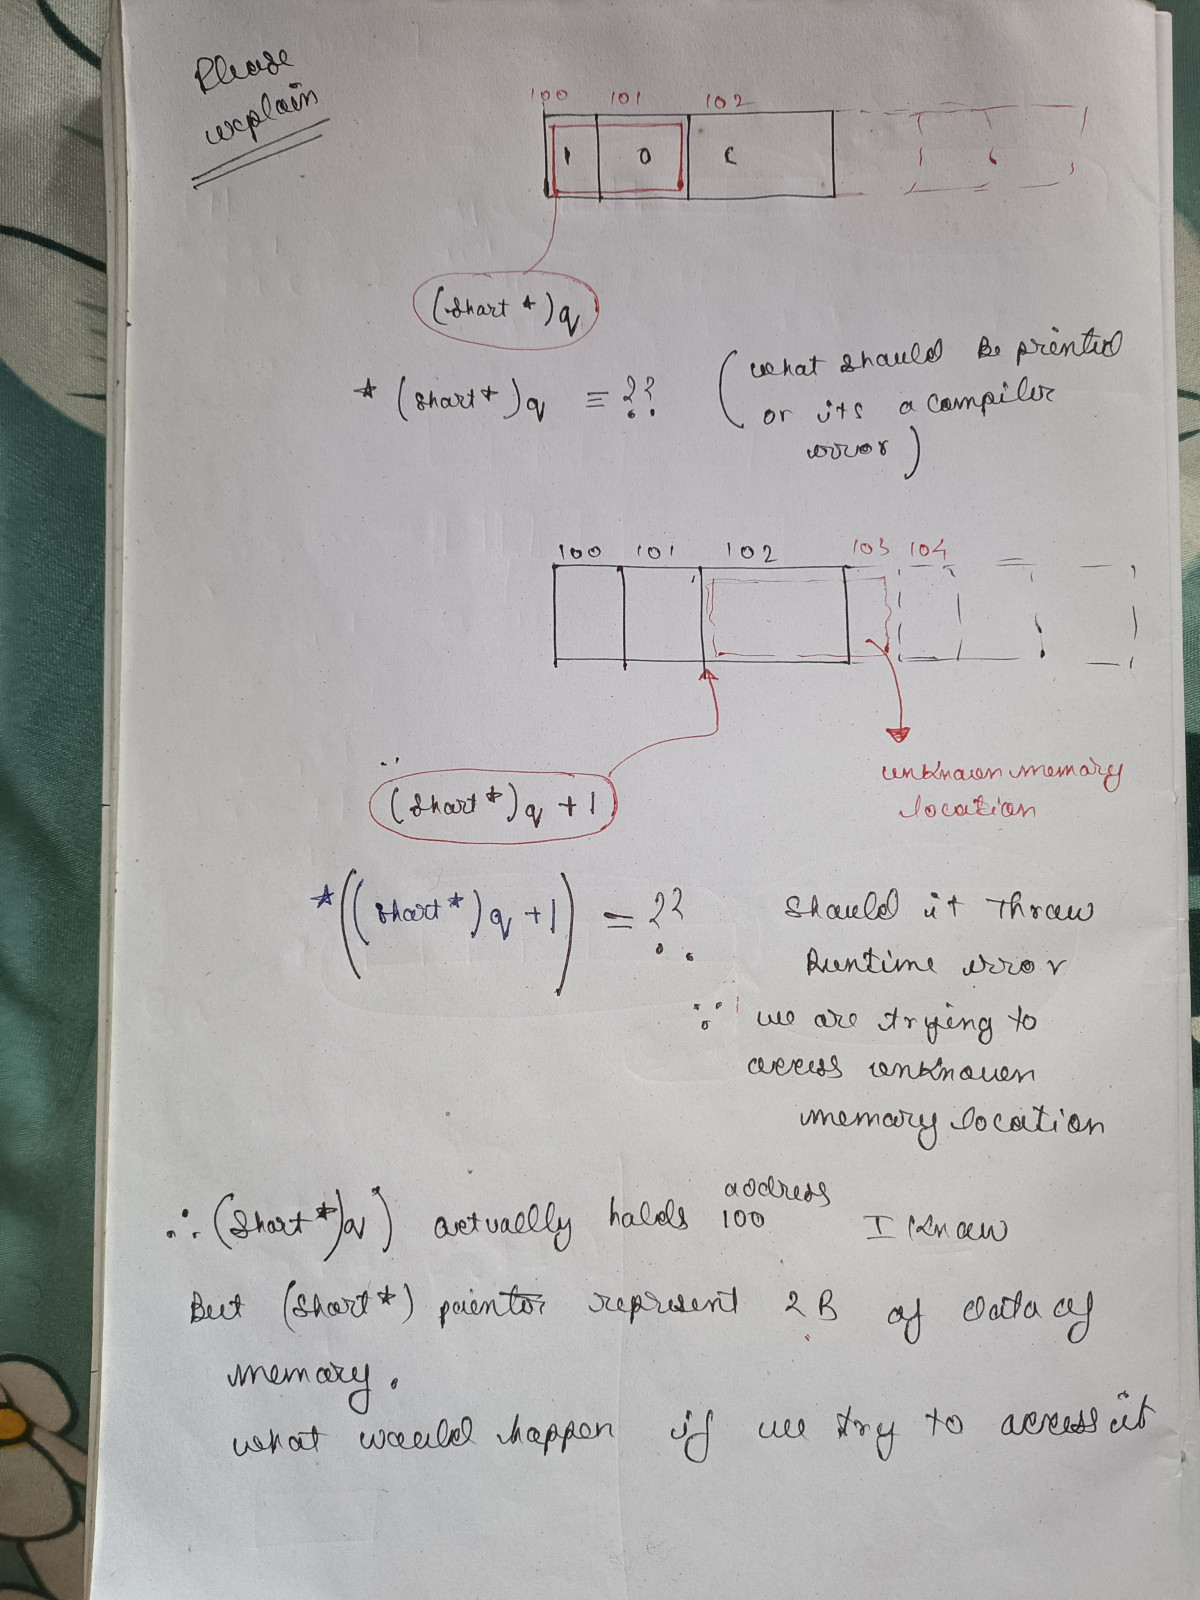 Please
explain
100 101 102
1 0 c
(short *)q
* (short *)q ≡ ?? (what should be printed
or its a compiler
error)
100 101 102 103 104
unknown memory
location
∴
(short *)q + 1
*((short *)q + 1) = ?? Should it throw
Runtime error
∵ we are trying to
access unknown
memory location
∴ (short *)q) actually holds address 100 I know
But (short *) pointer represent 2 B of data of
memory.
what would happen if we try to access it